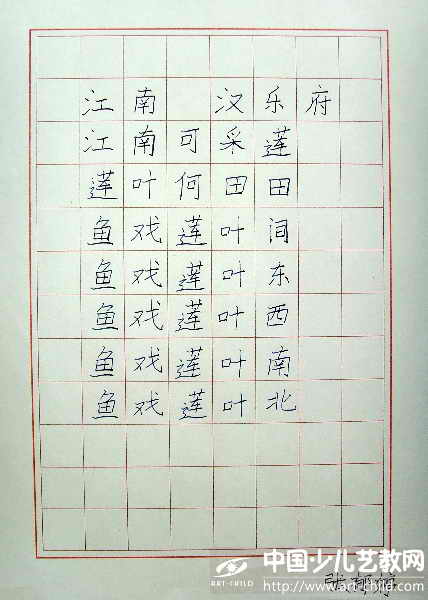 江南 汉乐府
江南可采莲
莲叶何田田
鱼戏莲叶间
鱼戏莲叶东
鱼戏莲叶西
鱼戏莲叶南
鱼戏莲叶北
中国少儿艺教网
ART-CHILD
http://www.art-child.com
张